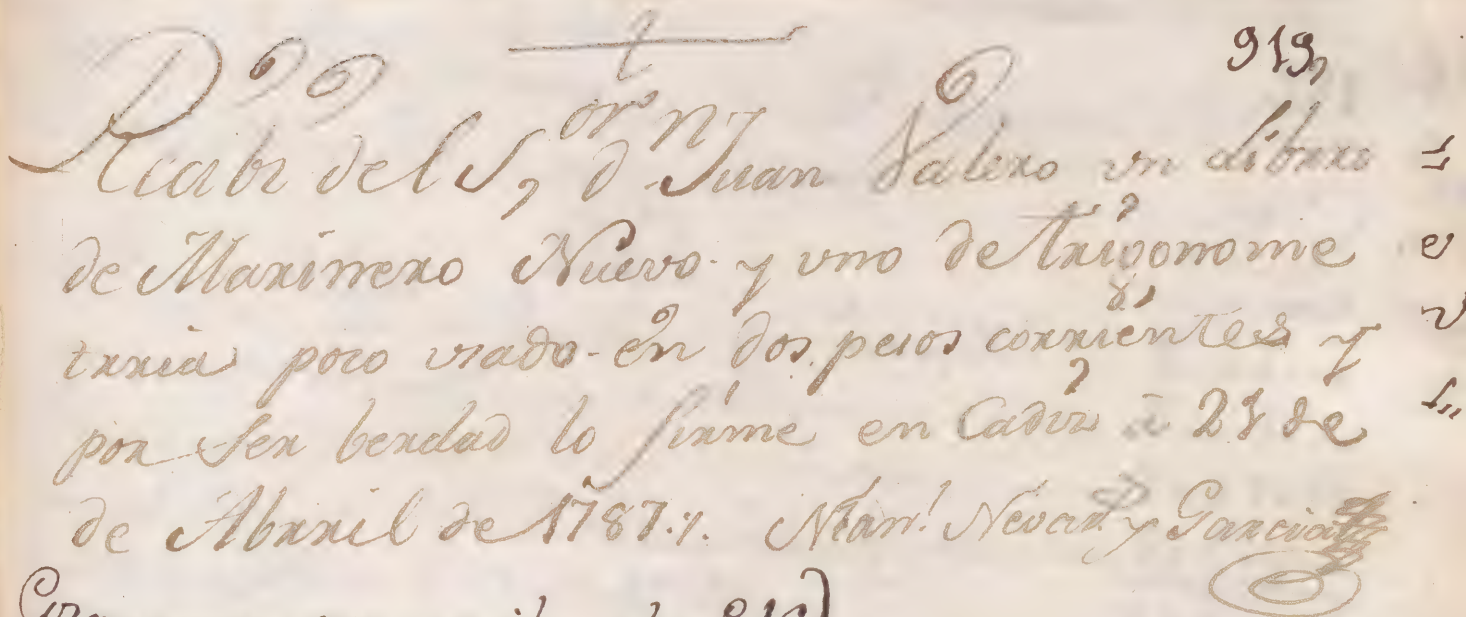 919,
Reciabi del S,or dn Juan Valero vn Librro
de Marinnero Nuevo. y vno de trigonome
trria poco vsado. en dos pesos corrientes y
por Ser berdad lo firme en Cadiz à 21 de
de Abrril de 1787.
y Garcia